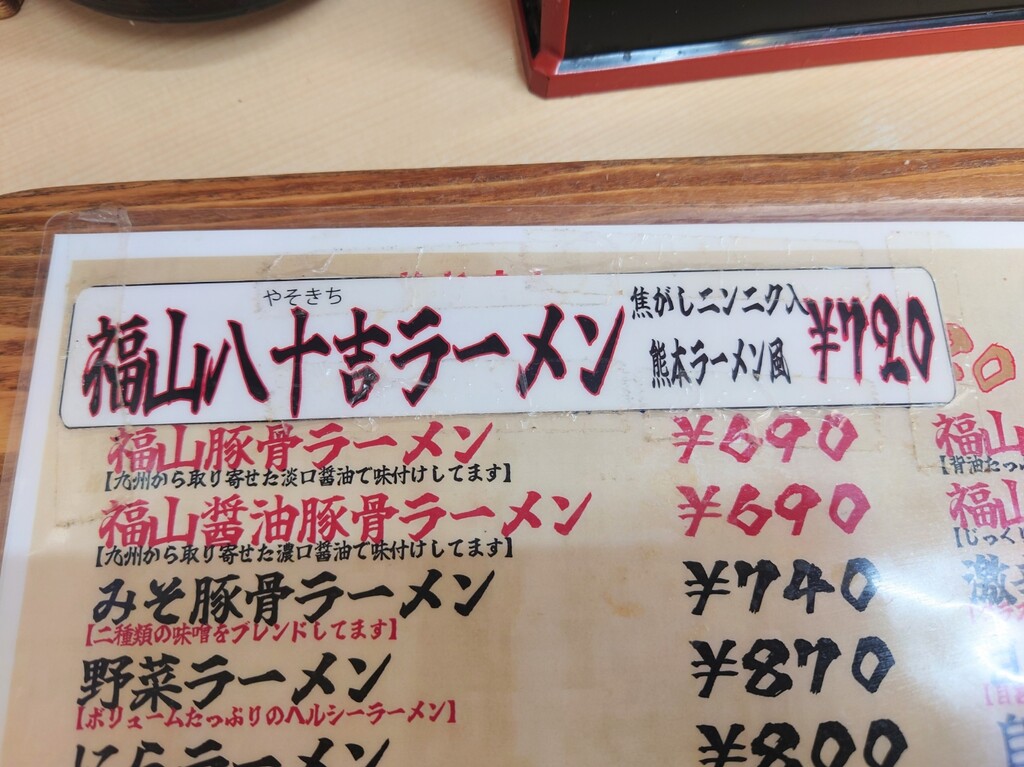 やそきち
福山八十吉ラーメン
焦がしニンニク入
熊本ラーメン風
¥720
福山豚骨ラーメン ¥690
【九州から取り寄せた淡口醤油で味付けしてます】
福山醤油豚骨ラーメン ¥690
【九州から取り寄せた濃口醤油で味付けしてます】
みそ豚骨ラーメン ¥740
【二種類の味噌をブレンドしてます】
野菜ラーメン ¥870
【ボリュームたっぷりのヘルシーラーメン】
にらラーメン ¥800
福山
【背油たっぷ
福山
【じっくり
激